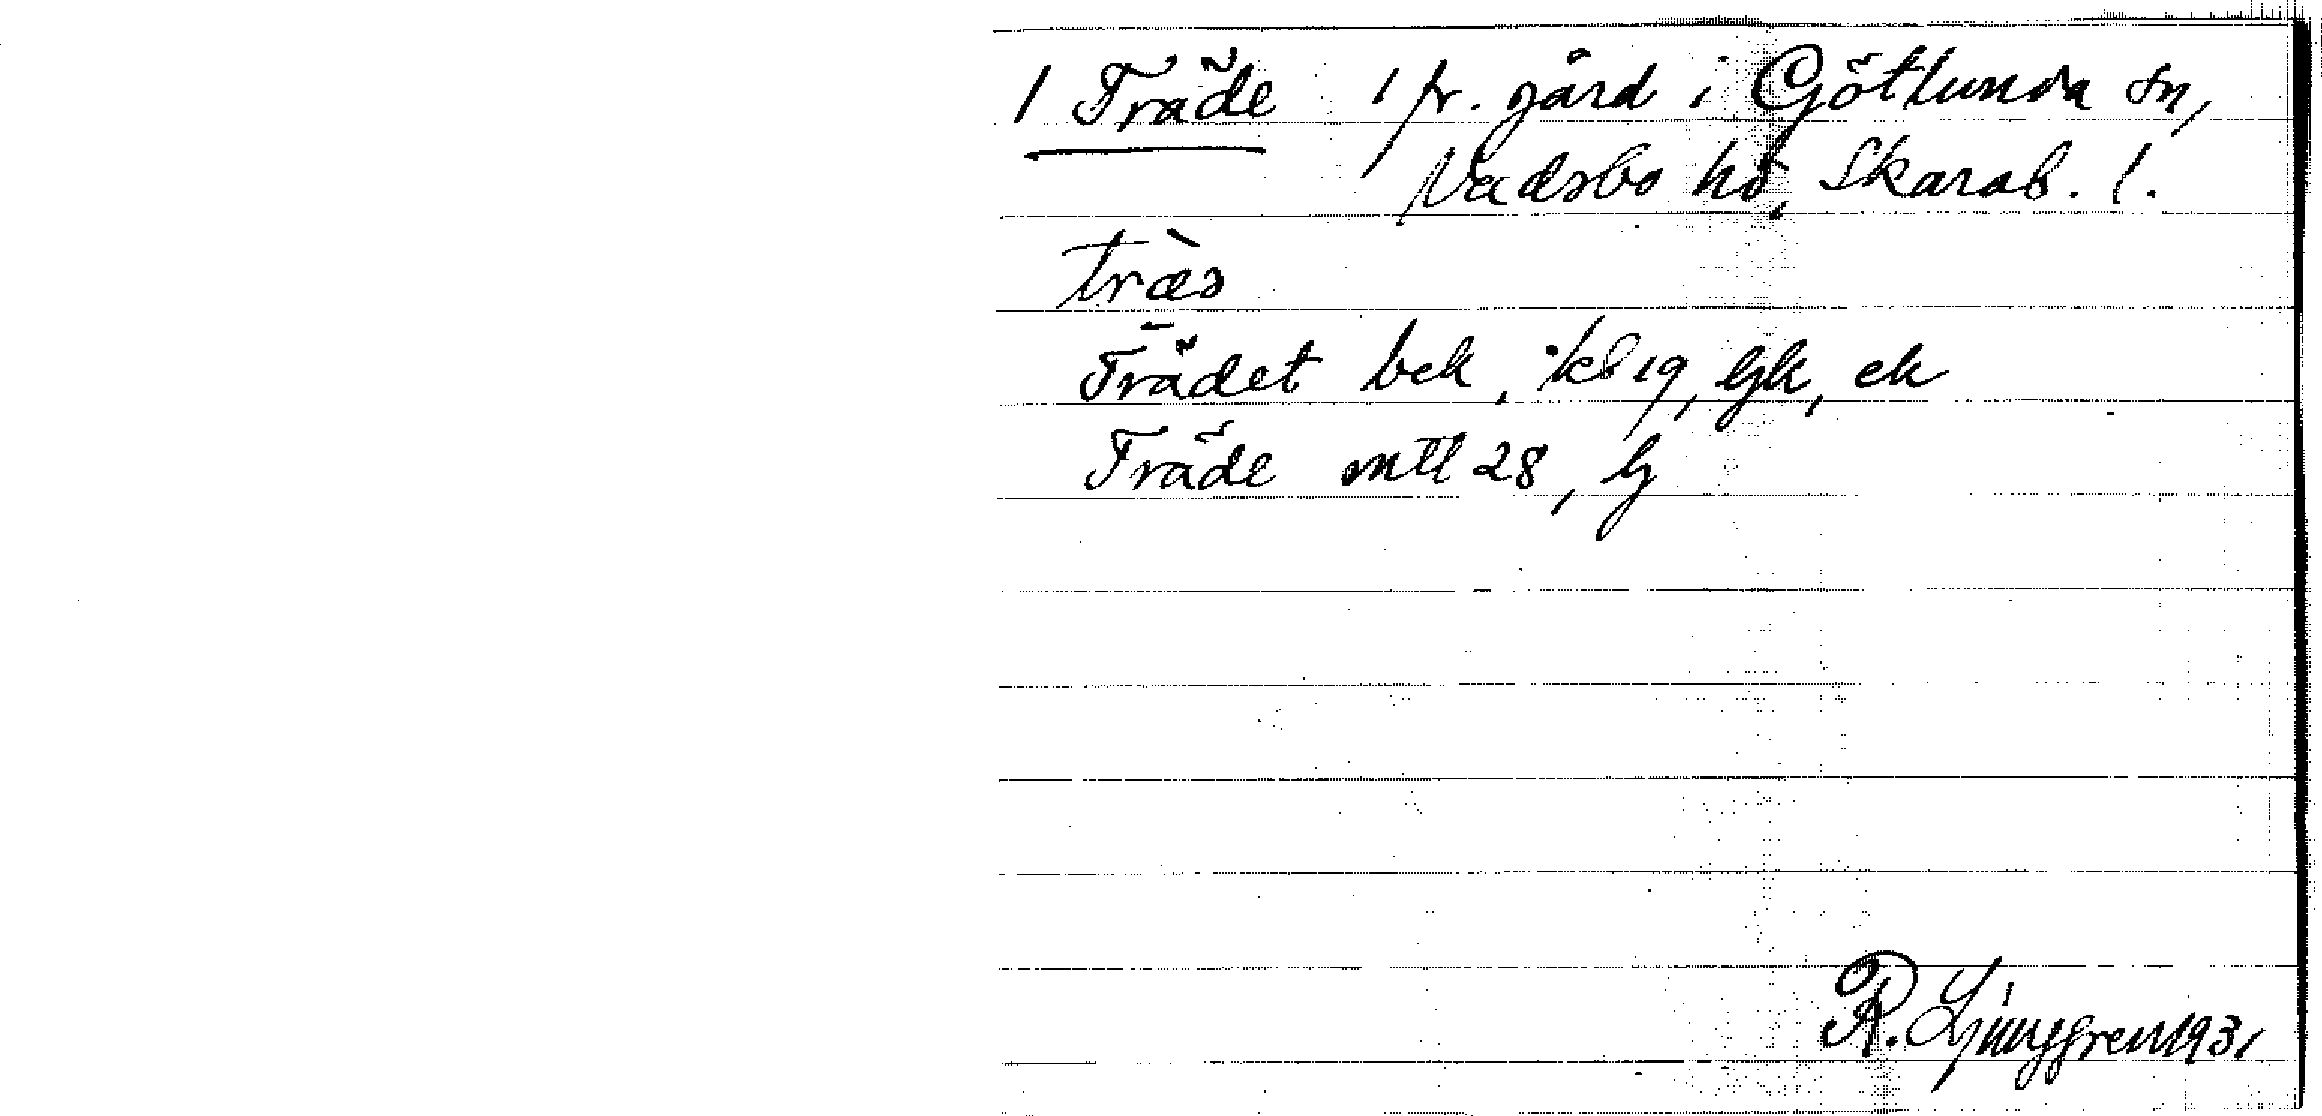 1 Träde 1 fr. gård i Götlunda sn,
Vadsbo hd, Skarab. l.
træ̀ə
Trädet bek, kl 19, hk, ek
Träde mtl 28,
R. Ljunggren 1931